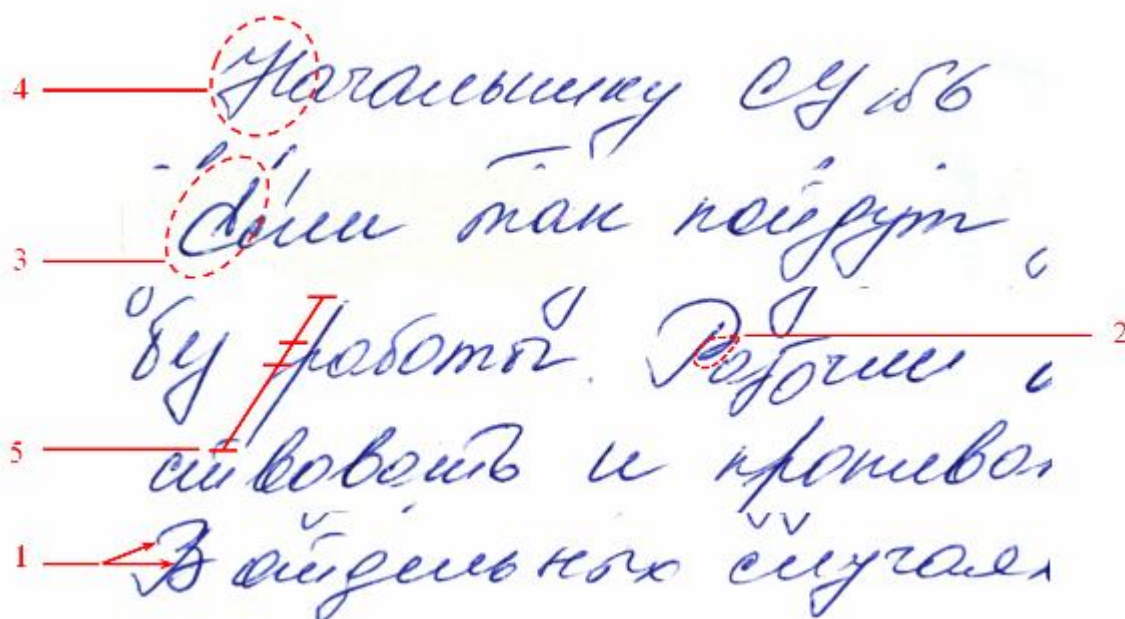 4 Начальнику СУ 156
Если так пойдут
3
бу работы. Рабочим 2
5
ствовать и противо
1 В отдельных случаях